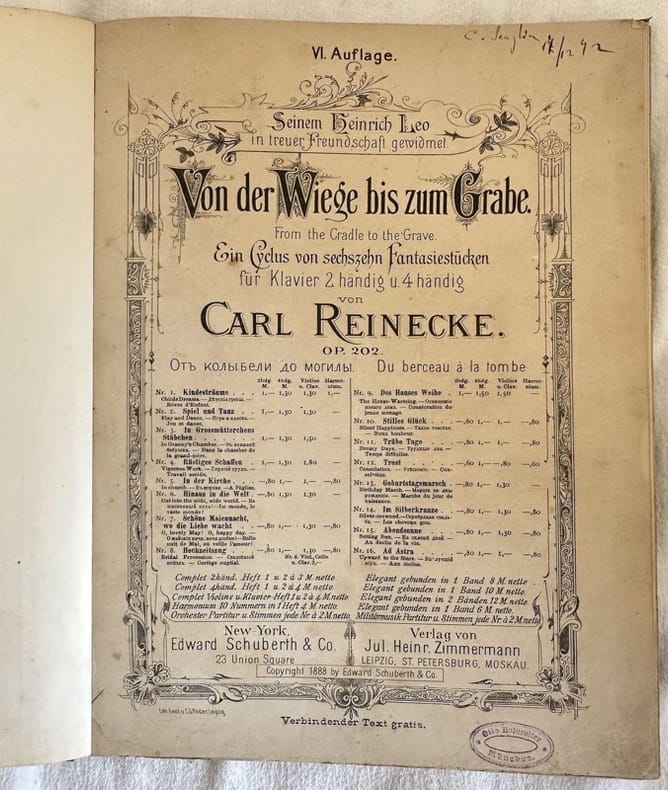 17/12 92
VI. Auflage.
Seinem Heinrich Leo
in treuer Freundschaft gewidmet.
Von der Wiege bis zum Grabe.
From the Cradle to the Grave.
Ein Cyclus von sechszehn Fantasiestücken
für Klavier 2 händig u. 4 händig
von
CARL REINECKE.
OP. 202.
Отъ колыбели до могилы. Du berceau à la tombe
2hdg. 4hdg. Violine Harmo-
M. M. u. Clav. nium.
Nr. 1. Kindesträume . . . 1,— 1,30 1,30 1,—
Childs Dreams. — Дѣтскія грезы. —
Rêves d'Enfant.
Nr. 2. Spiel und Tanz . . 1,— 1,30 1,30 —
Play and Dance. — Игра и пляска. —
Jeu et danse.
Nr. 3. In Grossmütterchens
Stübchen . . . . 1,— 1,30 1,50 —
In Granny's Chamber. —
— Dans la chambre de
la grand-mère.
Nr. 4. Rüstiges Schaffen . 1,— 1,30 1,80
Vigorous Work. —
Travail assidu.
Nr. 5. In der Kirche . . —,80 1,— 1,— —,80
In church — Въ церкви — A l'église.
Nr. 6. Hinaus in die Welt . —,80 1,30 1,30 —
Out into the wide, wide world. —
— Le monde, le
vaste monde!
Nr. 7. Schöne Maiennacht,
wo die Liebe wacht . —,80 1,— 1,30 —,80
O, lovely May! O, happy day. —
nuit de Mai, on veille l'amour!
Nr. 8. Hochzeitszug . . . —,80 1,30 1,30
Bridal Procession. — Свадебный
Cortège nuptial.
Nr. 8. Viol., Cello
u. Clav. 2,—
2hdg. 4hdg. Violine Harmo-
M. M. u. Clav. nium.
Nr. 9. Des Hauses Weihe . 1,— 1,50 1,50
The House-Warming. —
новаго дома. — Consécration du
jeune ménage.
Nr. 10. Stilles Glück . . —,80 1,— —,80
Silent Happiness. — Тихое счастье.
— Doux bonheur.
Nr. 11. Trübe Tage . . . —,80 1,30 1,— —,80
Dreary Days. —
Temps difficiles.
Nr. 12. Trost . . . . —,60 1,— —,80 —,60
Consolation. — Утѣшеніе. — Con-
solation.
Nr. 13. Geburtstagsmarsch . —,80 1,30 1,— —
Birthday March. —
рожденія. — Marche du jour de
naissance.
Nr. 14. Im Silberkranze . —,80 1,— 1,30 —,80
Silver-crowned. —
— Les cheveux gris.
Nr. 15. Abendsonne . . . —,80 1,— 1,30 —,80
Setting Sun. —
Au déclin de la vie.
Nr. 16. Ad Astra . . . —,80 1,— 1,— —,80
Upward to the Stars. —
Aux étoiles.
Complet 2händ. Heft 1 u. 2 à 3 M. netto.
Complet 4händ. Heft 1 u. 2 à 4 M. netto.
Complet Violine u. Klavier Heft 1 u. 2 à 4 M. netto.
Harmonium 10 Nummern in 1 Heft 4 M. netto.
Orchester Partitur u. Stimmen jede Nr. à 2 M. netto.
Elegant gebunden in 1 Band 8 M. netto.
Elegant gebunden in 1 Band 10 M. netto.
Elegant gebunden in 2 Bänden 12 M. netto.
Elegant gebunden in 1 Band 6 M. netto.
Militärmusik Partitur u. Stimmen jede Nr. à 2 M. netto.
New-York,
Edward Schuberth & Co.
23 Union Square
Verlag von
Jul. Heinr. Zimmermann
LEIPZIG, ST. PETERSBURG, MOSKAU.
Copyright 1888 by Edward Schuberth & Co.
Lith. Anst. v. C.G. Röder, Leipzig.
Verbindender Text gratis.
Otto Halbreiter
München.